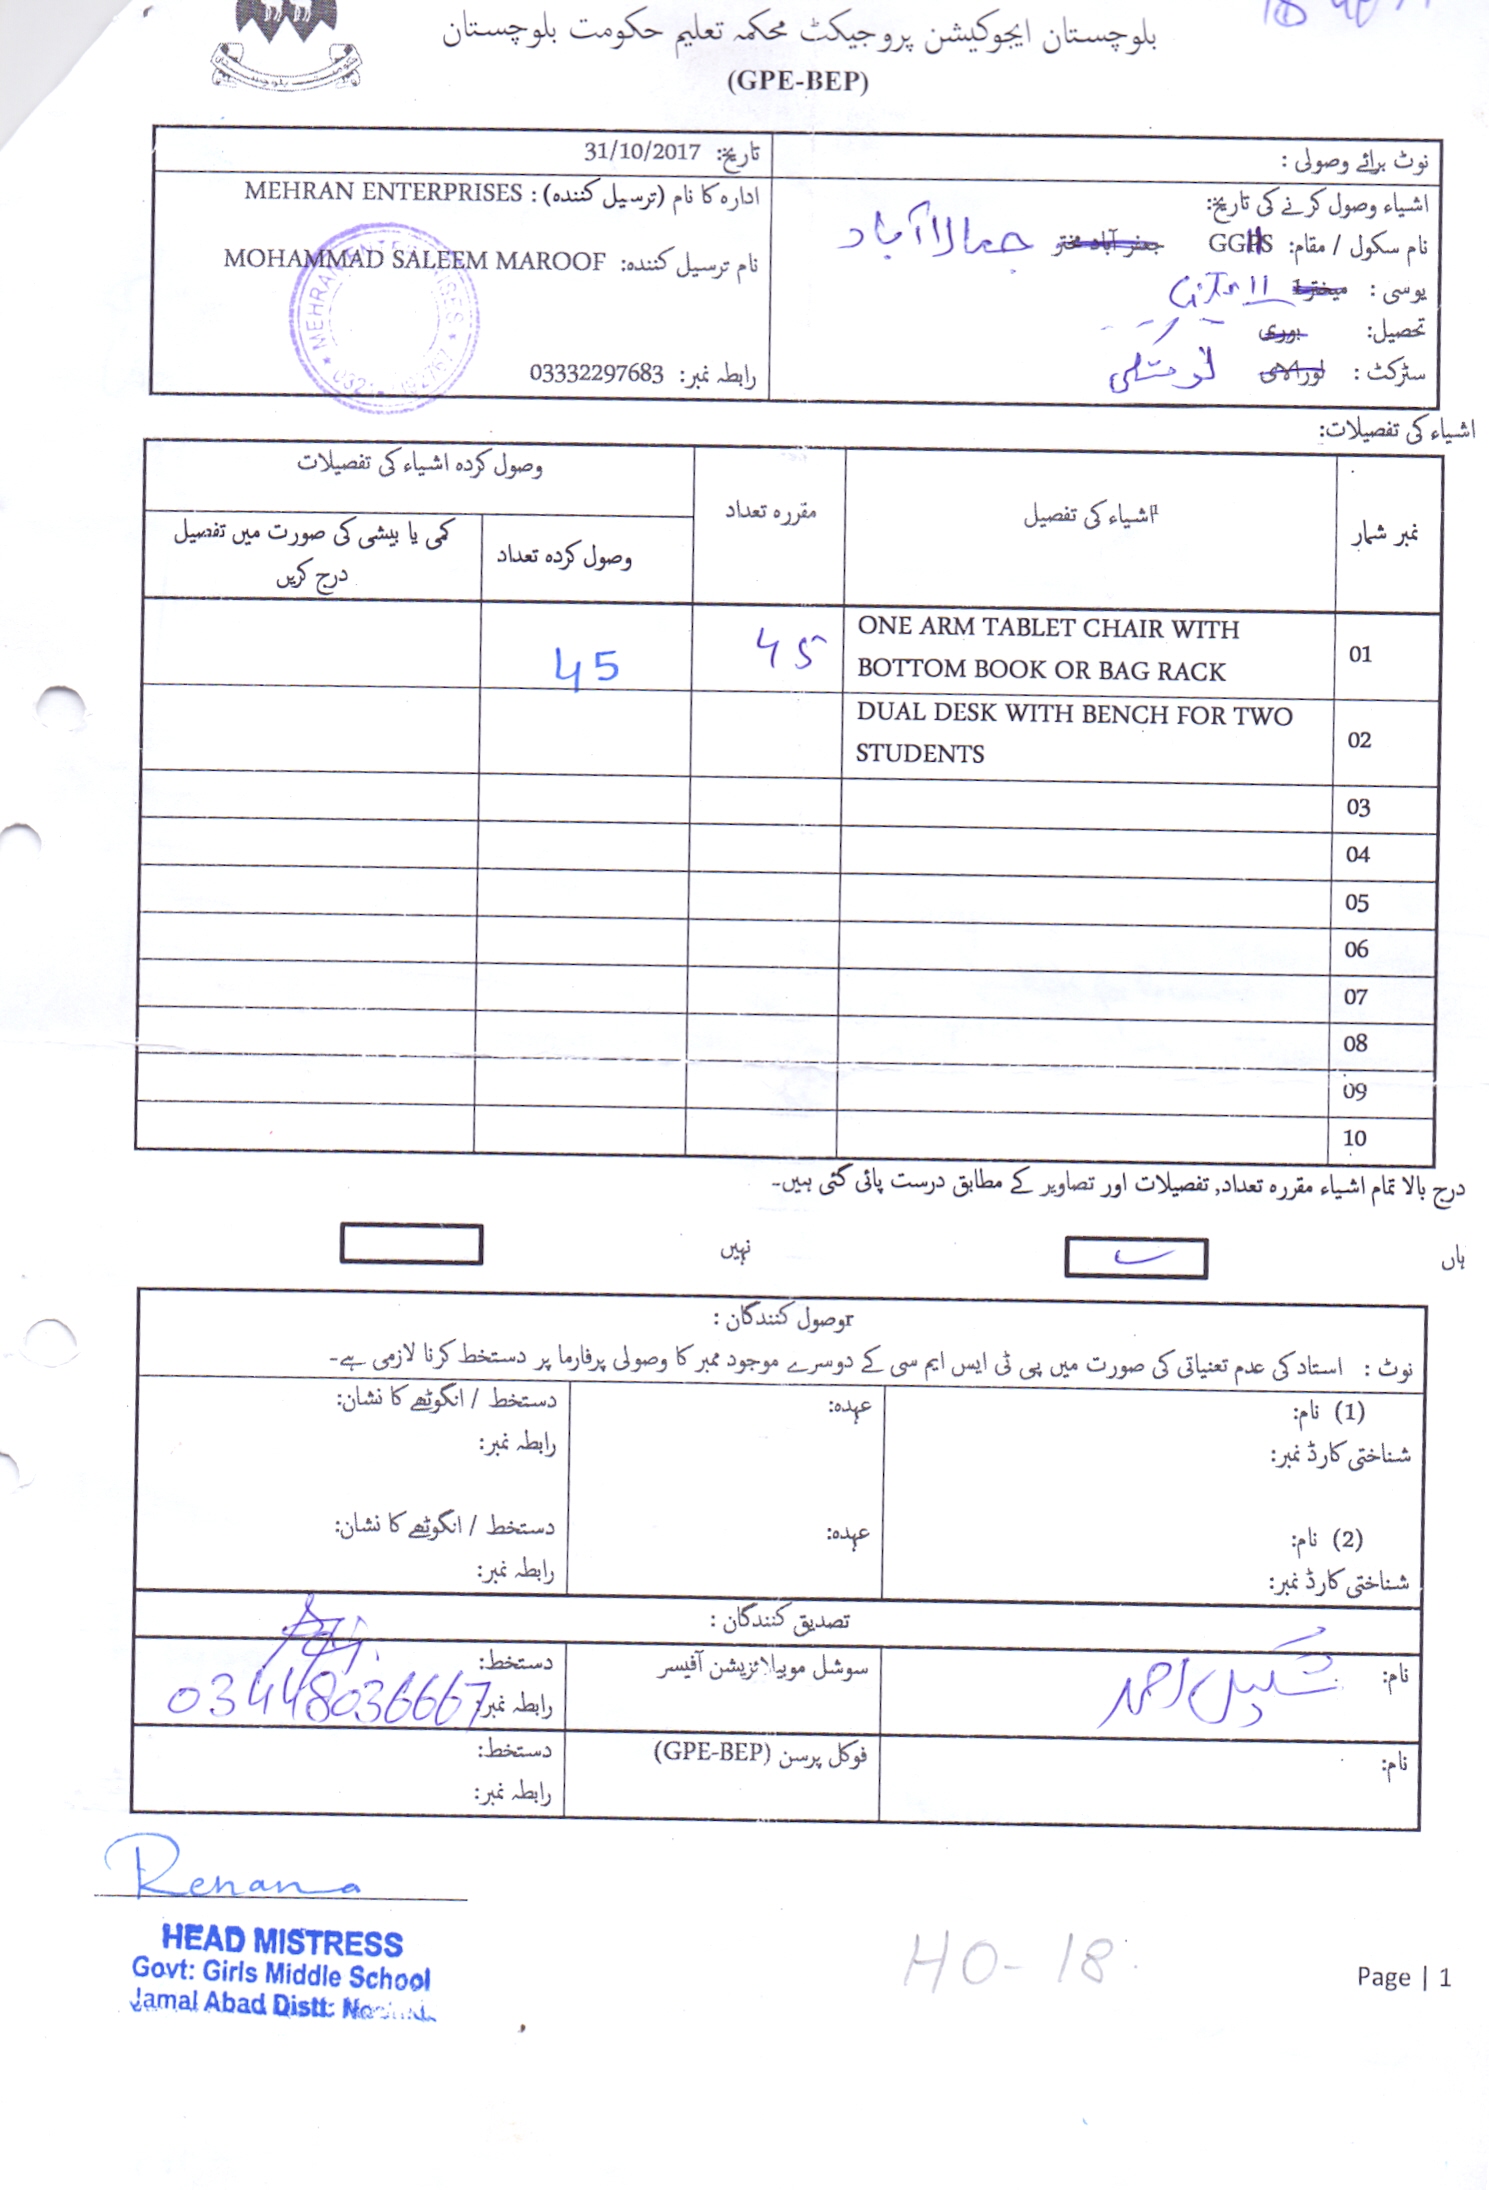 بلوچستان ایجوکیشن پروجیکٹ محکمہ تعلیم حکومت بلوچستان
(GPE-BEP)
نوٹ برائے وصولی :
تاریخ: 31/10/2017
اشیاء وصول کرنے کی تاریخ:
نام سکول / مقام: GGHS جمال آباد
یوسی :
تحصیل:
سٹرکٹ : نوشکی
ادارہ کا نام (ترسیل کنندہ) : MEHRAN ENTERPRISES
نام ترسیل کنندہ: MOHAMMAD SALEEM MAROOF
رابطہ نمبر: 03332297683
MEHRAN ENTERPRISES
اشیاء کی تفصیلات:
نمبر شمار
اشیاء کی تفصیل
مقررہ تعداد
وصول کردہ اشیاء کی تفصیلات
وصول کردہ تعداد
کمی یا بیشی کی صورت میں تفصیل
درج کریں
01 ONE ARM TABLET CHAIR WITH
BOTTOM BOOK OR BAG RACK 45 45
02 DUAL DESK WITH BENCH FOR TWO
STUDENTS
03
04
05
06
07
08
09
10
درج بالا تمام اشیاء مقررہ تعداد, تفصیلات اور تصاویر کے مطابق درست پائی گئی ہیں۔
ہاں نہیں
وصول کنندگان :
نوٹ : استاد کی عدم تعنیاتی کی صورت میں پی ٹی ایس ایم سی کے دوسرے موجود ممبر کا وصولی پرفارما پر دستخط کرنا لازمی ہے۔
(1) نام: عہدہ: دستخط / انگوٹھے کا نشان:
شناختی کارڈ نمبر: رابطہ نمبر:
(2) نام: عہدہ: دستخط / انگوٹھے کا نشان:
شناختی کارڈ نمبر: رابطہ نمبر:
تصدیق کنندگان :
نام: شکیل احمد سوشل موبیلائزیشن آفیسر دستخط:
رابطہ نمبر: 03448036667
نام: فوکل پرسن (GPE-BEP) دستخط:
رابطہ نمبر:
Rehana
HEAD MISTRESS
Govt: Girls Middle School
Jamal Abad Distt:
HO-18
Page | 1